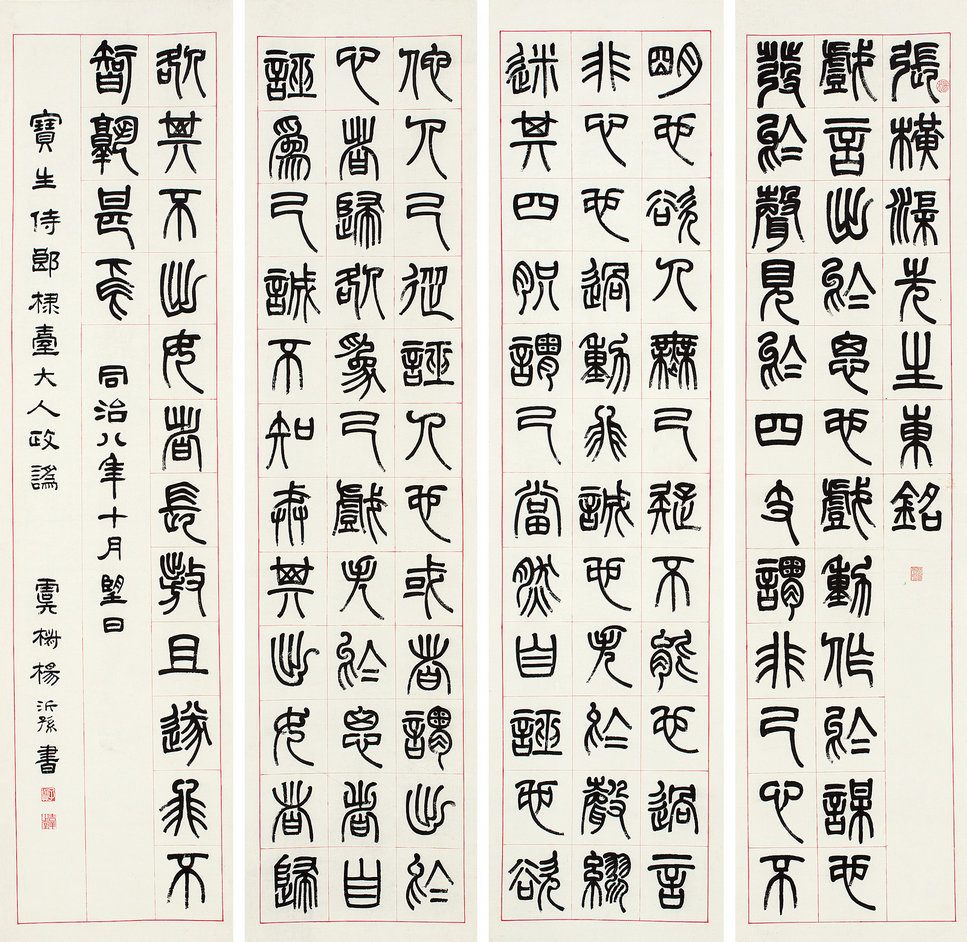 張橫渠先生東銘
戲言出於思也戲動作於謀也
發於聲見於四支謂非己心不
明也欲人無己疑不能也過言
非心也過動非誠也失於聲繆
迷其四胑謂己當然自誣也欲
他人己從誣人也或者謂出於
心者歸咎爲己戲失於思者自
誣爲己誠不知戒其出女者歸
咎其不出女者長敖且遂非不
智孰甚焉
同治八年十月朢日
寶生侍郎棣臺大人政譌
虞 楊沂孫書